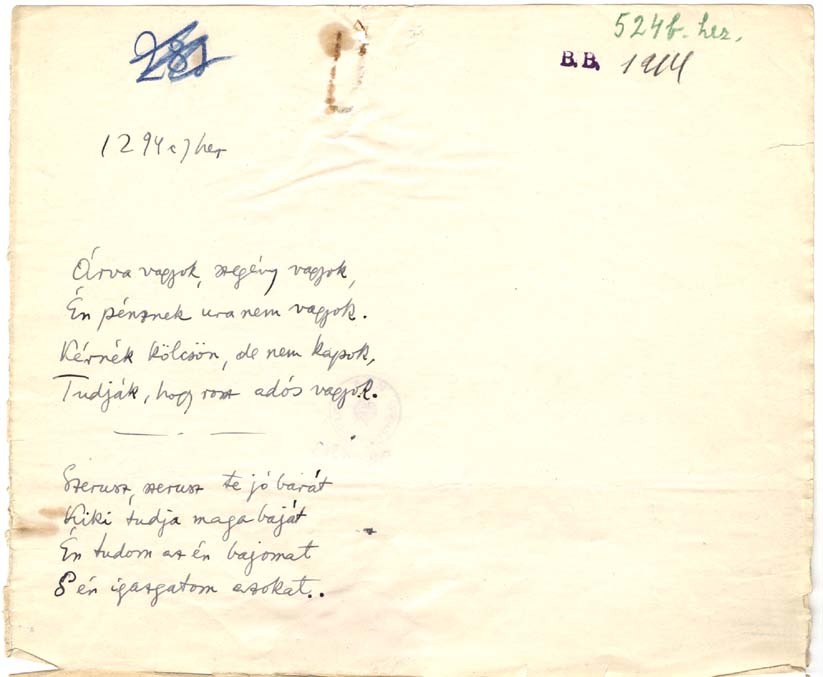 281
524b. her.
B.B. 1914
1294c) her
Árva vagyok, szegény vagyok,
Én pénznek ura nem vagyok.
Kérnék kölcsön, de nem kapok,
Tudják, hogy rosz adós vagyok.
Szerusz, szerusz te jó barát
Kiki tudja maga baját
Én tudom az én bajomat
S én igazgatom azokat..